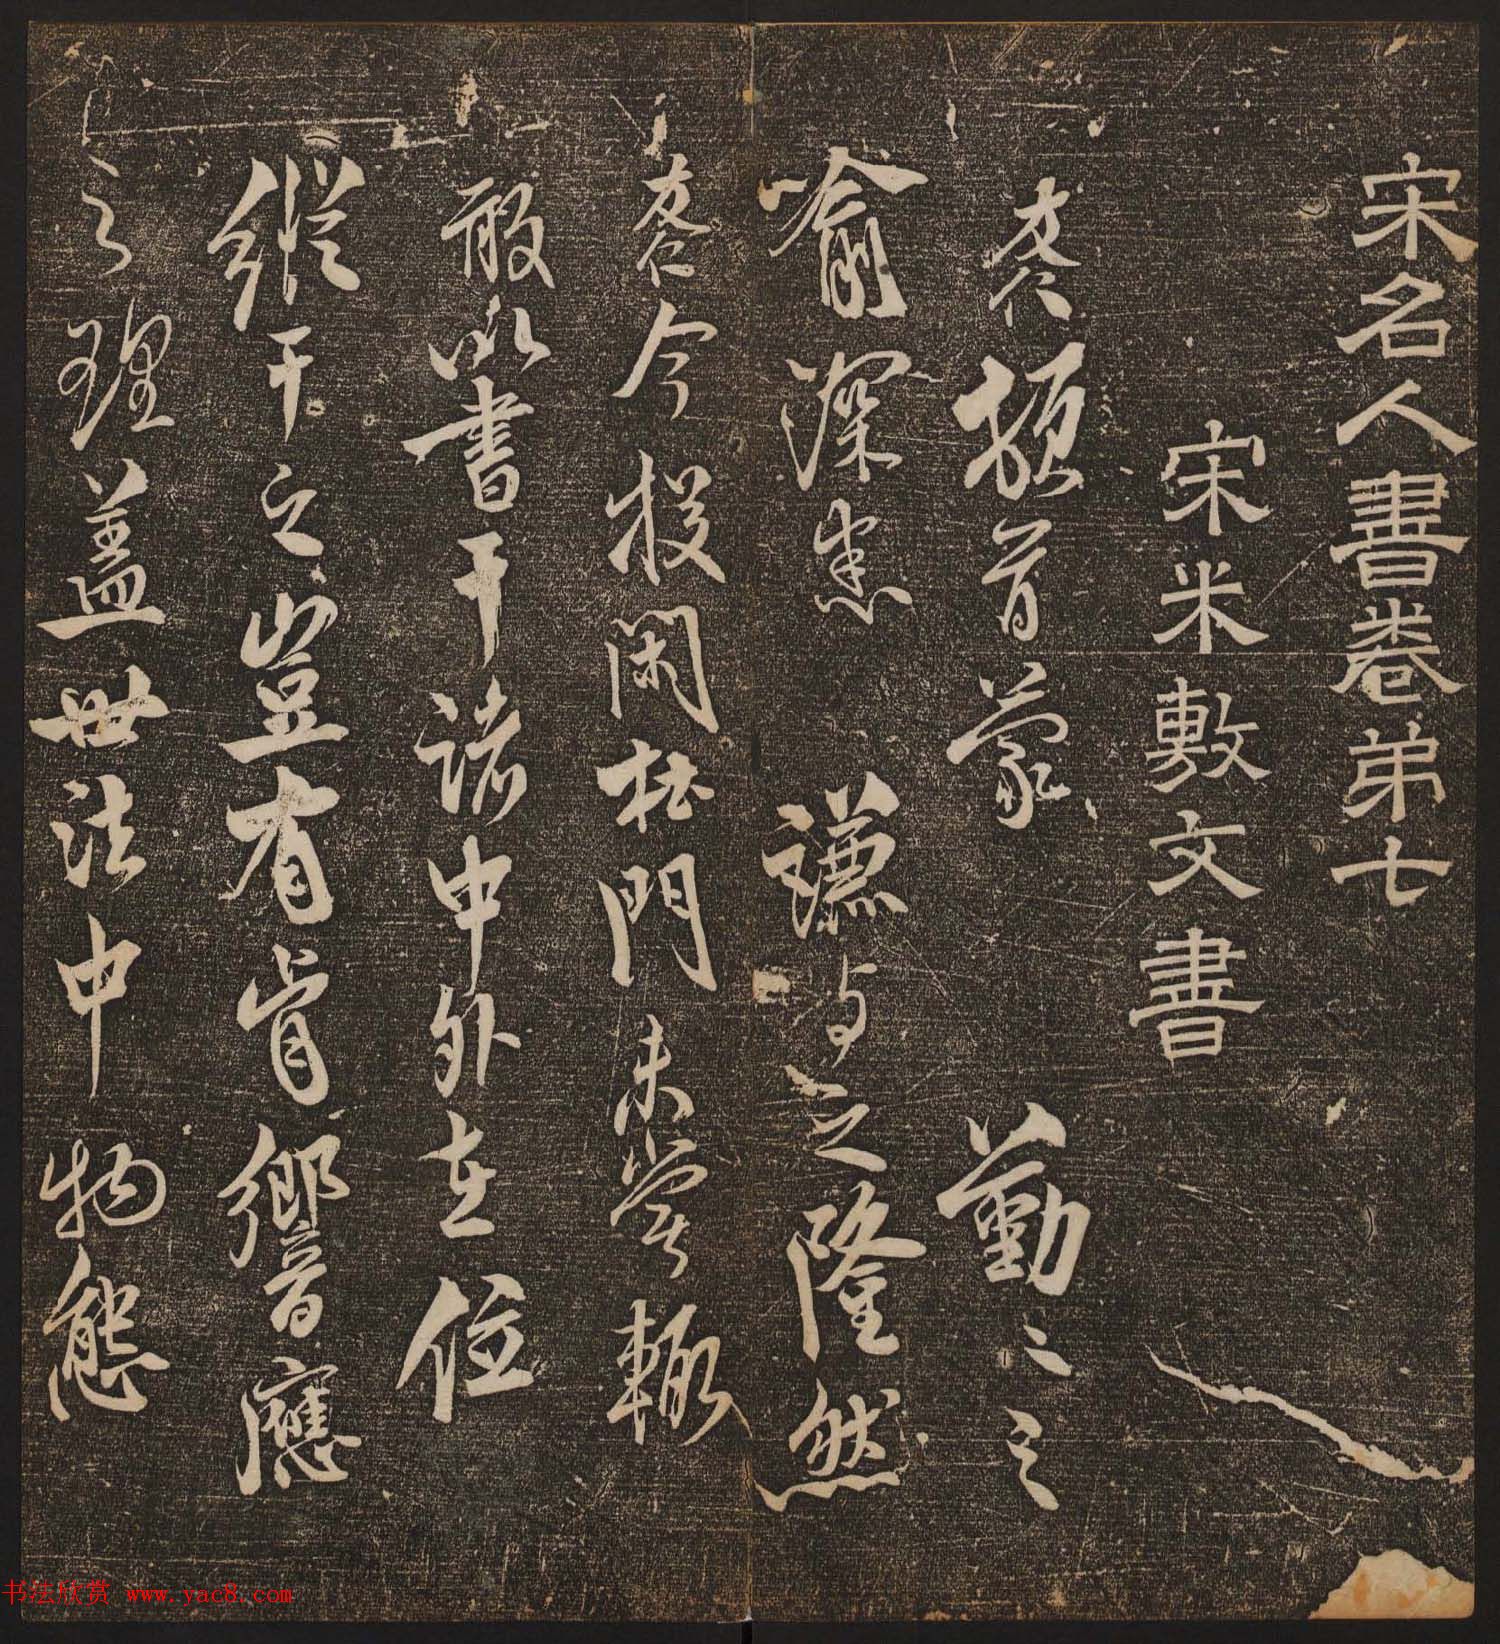 宋名人書卷弟七
宋米敷文書
友仁頓首蒙勤々之
喻深悉謙與之隆然
友仁今投閑杜門未嘗輒
敢以書干諸中外在位
縱干之豈有肯響應
之理蓋世法中物態
书法欣赏 www.yac8.com